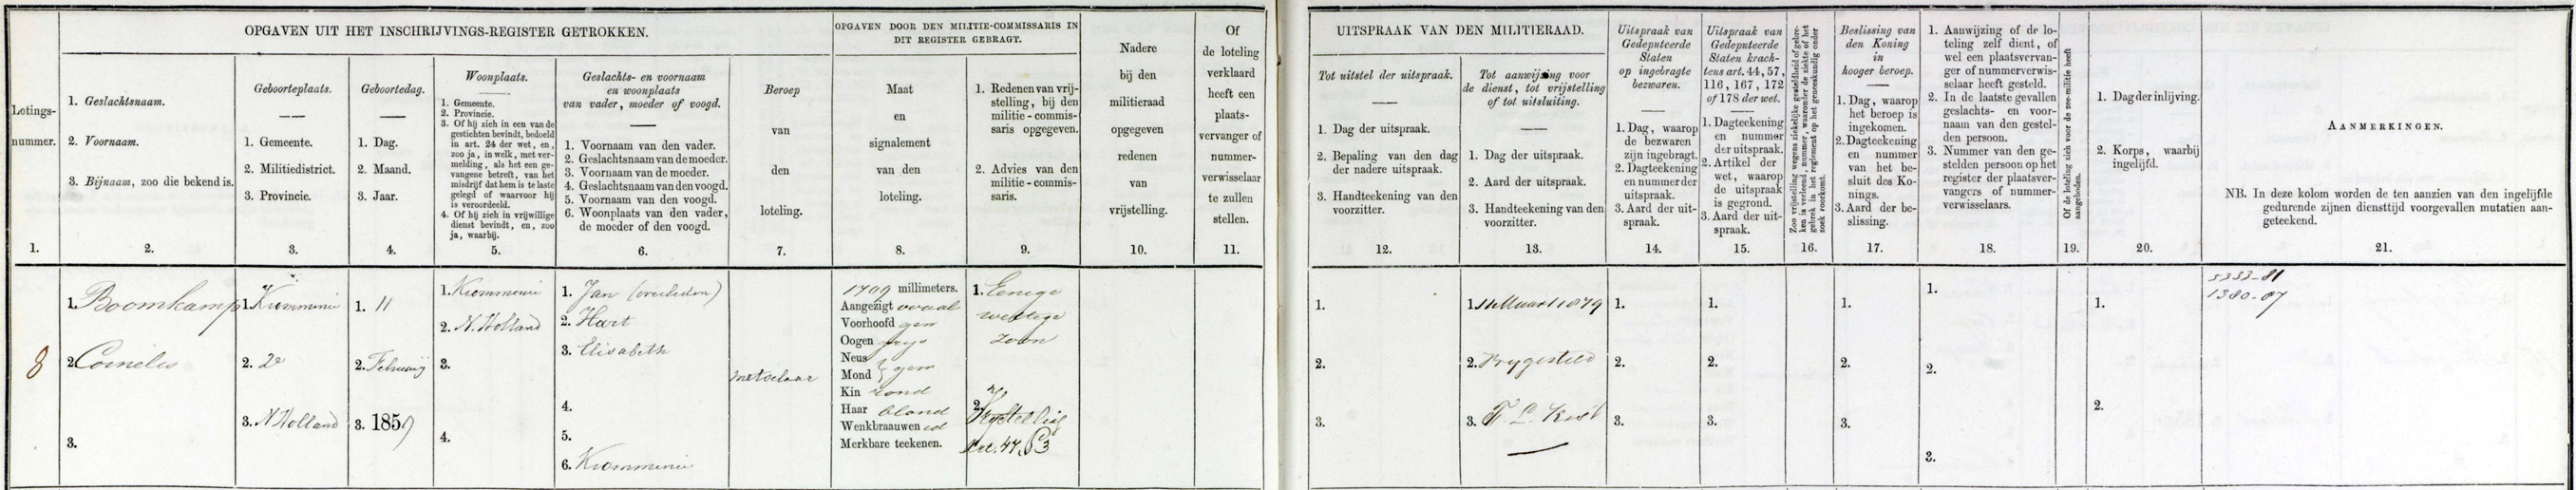 OPGAVEN UIT HET INSCHRIJVINGS-REGISTER GETROKKEN.
Lotings-
nummer.
1.
1. Geslachtsnaam.
2. Voornaam.
3. Bijnaam, zoo die bekend is.
2.
Geboorteplaats.
1. Gemeente.
2. Militiedistrict.
3. Provincie.
3.
Geboortedag.
1. Dag.
2. Maand.
3. Jaar.
4.
Woonplaats.
1. Gemeente.
2. Provincie.
3. Of hij zich in een van de
gestichten bevindt, bedoeld
in art. 24 der wet, en,
zoo ja, in welk, met ver-
melding, als het een ge-
vangene betreft, van het
misdrijf dat hem is te laste
gelegd of waarvoor hij
is veroordeeld.
4. Of hij zich in vrijwillige
dienst bevindt, en, zoo
ja, waarbij.
5.
Geslachts- en voornaam
en woonplaats
van vader, moeder of voogd.
1. Voornaam van den vader.
2. Geslachtsnaam van de moeder.
3. Voornaam van de moeder.
4. Geslachtsnaam van den voogd.
5. Voornaam van den voogd.
6. Woonplaats van den vader,
de moeder of den voogd.
6.
Beroep
van
den
loteling.
7.
OPGAVEN DOOR DEN MILITIE-COMMISSARIS IN
DIT REGISTER GEBRAGT.
Maat
en
signalement
van den
loteling.
8.
1. Redenen van vrij-
stelling, bij den
militie-commis-
saris opgegeven.
2. Advies van den
militie-commis-
saris.
9.
Nadere
bij den
militieraad
opgegeven
redenen
van
vrijstelling.
10.
Of
de loteling
verklaard
heeft een
plaats-
vervanger of
nummer-
verwisselaar
te zullen
stellen.
11.
UITSPRAAK VAN DEN MILITIERAAD.
Tot uitstel der uitspraak.
1. Dag der uitspraak.
2. Bepaling van den dag
der nadere uitspraak.
3. Handteekening van den
voorzitter.
12.
Tot aanwijzing voor
de dienst, tot vrijstelling
of tot uitsluiting.
1. Dag der uitspraak.
2. Aard der uitspraak.
3. Handteekening van den
voorzitter.
13.
Uitspraak van
Gedeputeerde
Staten
op ingebragte
bezwaren.
1. Dag, waarop
de bezwaren
zijn ingebragt.
2. Dagteekening
en nummer der
uitspraak.
3. Aard der uit-
spraak.
14.
Uitspraak van
Gedeputeerde
Staten krach-
tens art. 44, 57,
116, 167, 172
of 178 der wet.
1. Dagteekening
en nummer
der uitspraak.
2. Artikel der
wet, waarop
de uitspraak
is gegrond.
3. Aard der uit-
spraak.
15.
Zoo vrijstelling wegens ziekelijke gesteldheid of gebre-
ken is verleend, nummer, waaronder de ziekte of het
gebrek in het reglement op het geneeskundig onder
zoek voorkomt.
16.
Beslissing van
den Koning
in
hooger beroep.
1. Dag, waarop
het beroep is
ingekomen.
2. Dagteekening
en nummer
van het be-
sluit des Ko-
nings.
3. Aard der be-
slissing.
17.
1. Aanwijzing of de lo-
teling zelf dient, of
wel een plaatsvervan-
ger of nummerverwis-
selaar heeft gesteld.
2. In de laatste gevallen
geslachts- en voor-
naam van den gestel-
den persoon.
3. Nummer van den ge-
stelden persoon op het
register der plaatsver-
vangers of nummer-
verwisselaars.
18.
Of de loteling zich voor de zee-militie heeft
aangeboden.
19.
1. Dag der inlijving.
2. Korps, waarbij
ingelijfd.
20.
AANMERKINGEN.
NB. In deze kolom worden de ten aanzien van den ingelijfde
gedurende zijnen diensttijd voorgevallen mutatien aan-
geteekend.
21.
8
1. Boomkamp
2. Cornelis
3.
1. Krommenie
2. 2e
3. N Holland
1. 11
2. Februarij
3. 1859
1. Krommenie
2. N. Holland
3.
4.
1. Jan (overleden)
2. Hart
3. Elisabeth
4.
5.
6. Krommenie
metselaar
1709 millimeters.
Aangezigt ovaal
Voorhoofd gew
Oogen grys
Neus
Mond gew
Kin rond
Haar blond
Wenkbraauwen id
Merkbare teekenen.
1. Eenige
wettige
zoon
2. Vrystelling
Art. 47, § 3
1.
2.
3.
1. 11 Maart 1879
2. Vrygesteld
3.
1.
2.
3.
1.
2.
3.
1.
2.
3.
1.
2.
3.
1.
2.
5333-81
1380-87